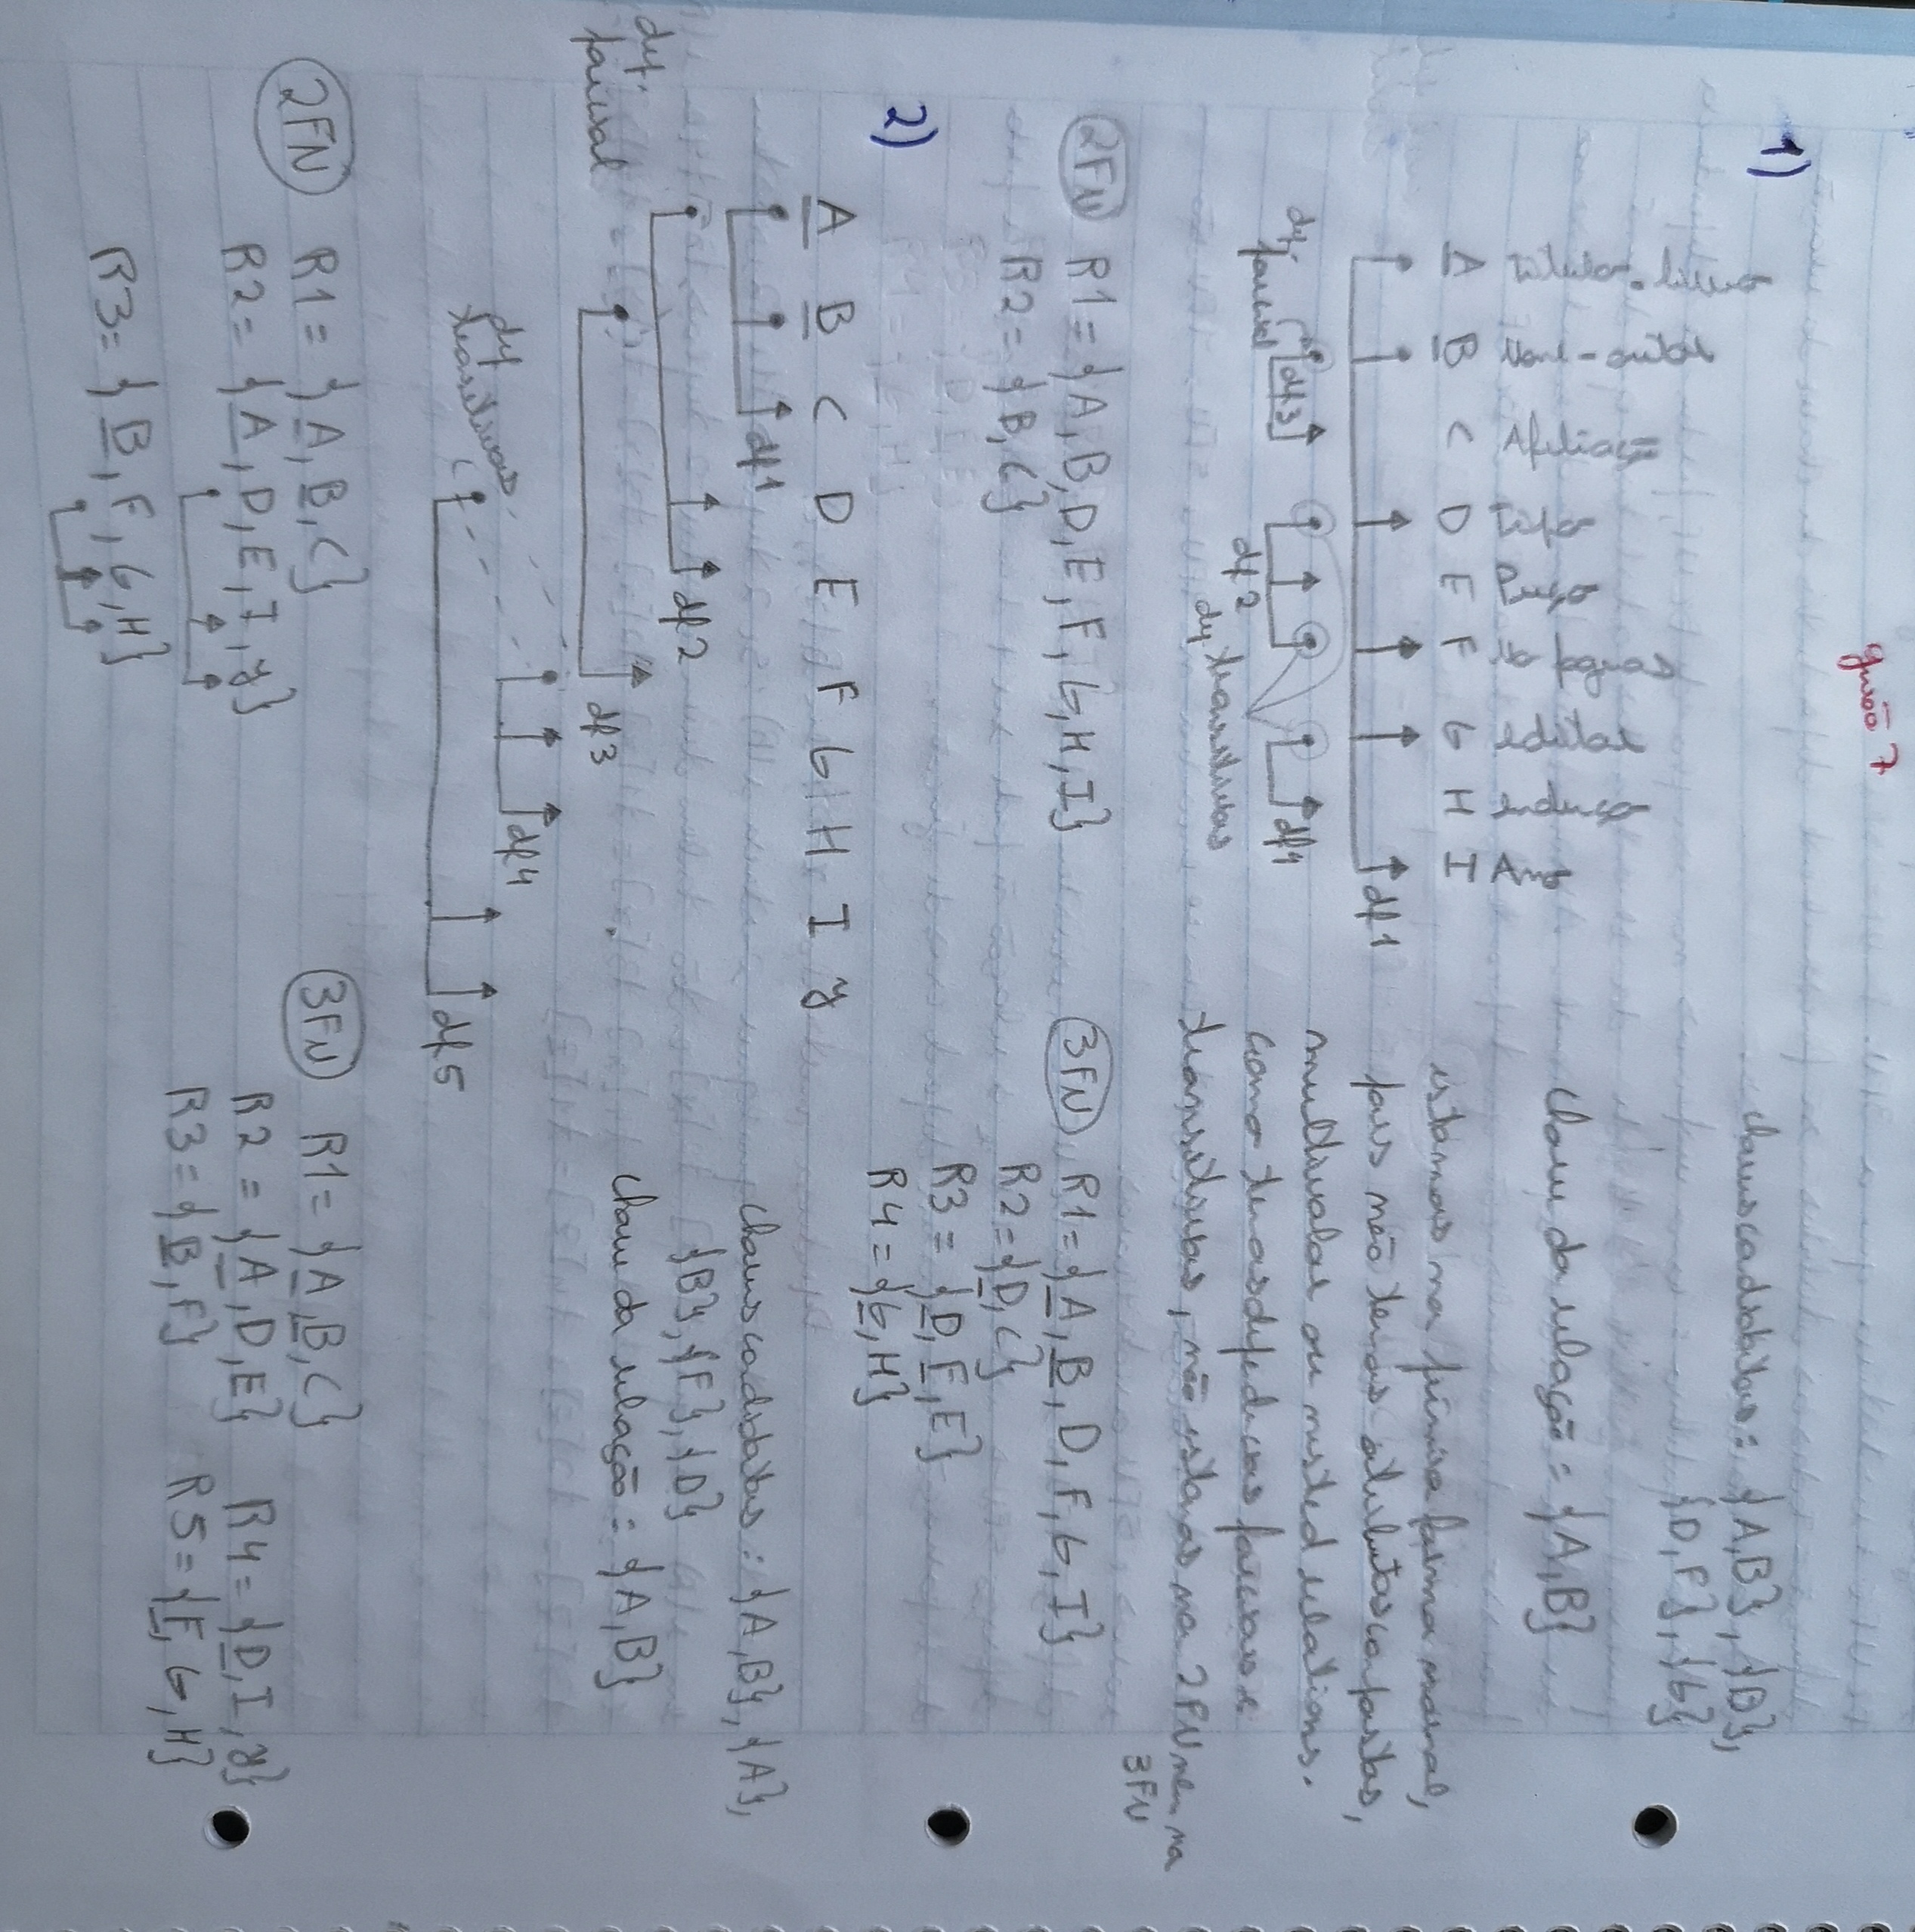 guião 7
1)
A B C D E F G H I
titulo-livro
Nome-autor
Afiliação
Tipo
Preço
no paginas
editor
endereço
Ano
df1
df3
dep. parcial
df2
df4
dep. transitivas
chaves candidatas: {A,B}, {B},
{D,F}, {G}
chave da relação = {A,B}
estamos na primeira forma normal,
pois não temos atributos compostos,
multivalor ou nested relations.
como temos dependencias parciais e
transitivas, não estamos na 2FN nem na
3FN
2FN R1 = {A,B,D,E,F,G,H,I}
R2 = {B,C}
3FN R1= {A,B,D,F,G,I}
R2={D,C}
R3 = {D,F,E}
R4 = {G,H}
2)
A B C D E F G H I J
df1
df2
dep. parcial
df3
df4
dep transitivas
df5
chaves candidatas: {A,B}, {A},
{B}, {F}, {D}
chave da relação = {A,B}
2FN R1 = {A,B,C}
R2 = {A,D,E,I,J}
R3= {B,F,G,H}
3FN R1= {A,B,C}
R2 = {A,D,E} R4= {D,I,J}
R3={B,F} R5={F,G,H}